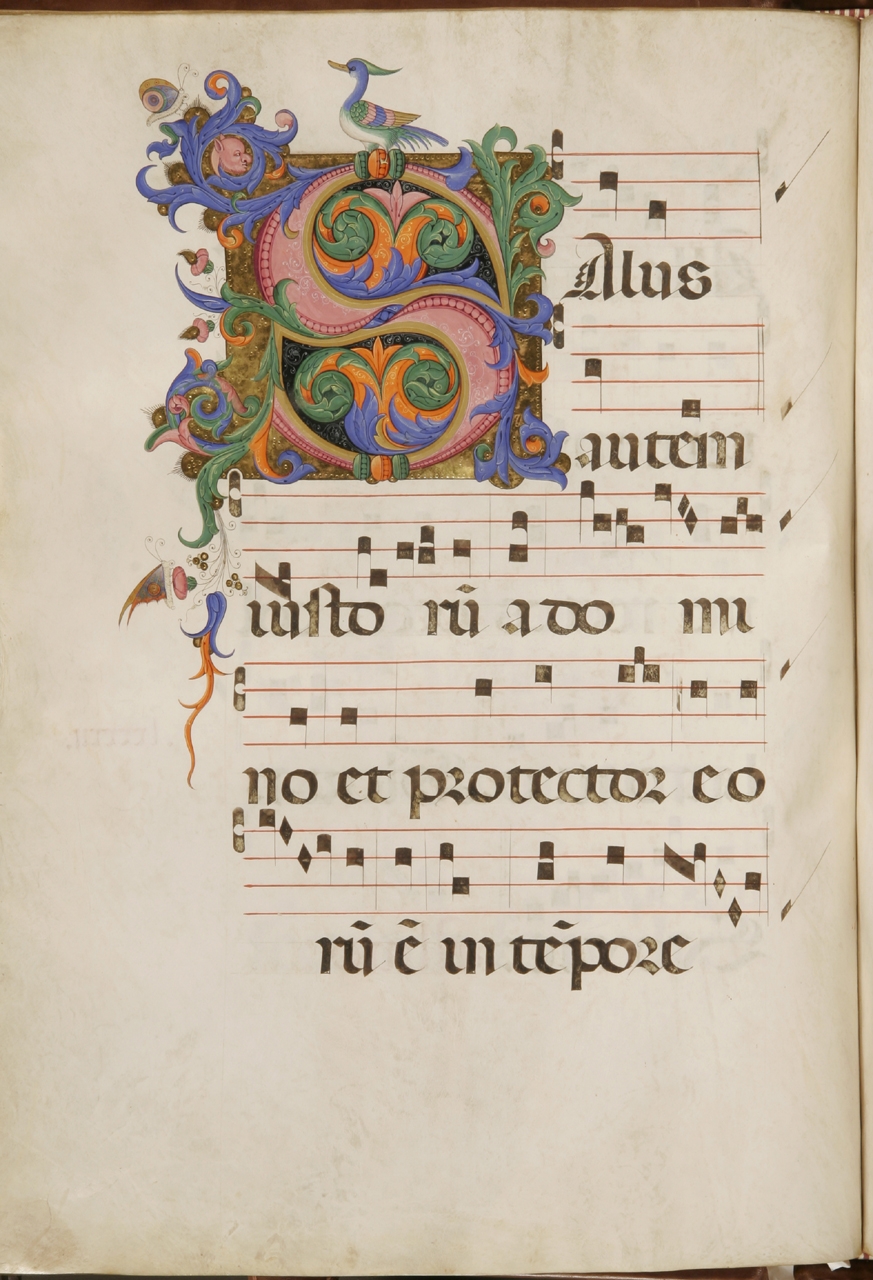 SAlus
autem
iusto rū a do mi
no et protector eo
rū ē in tēpore